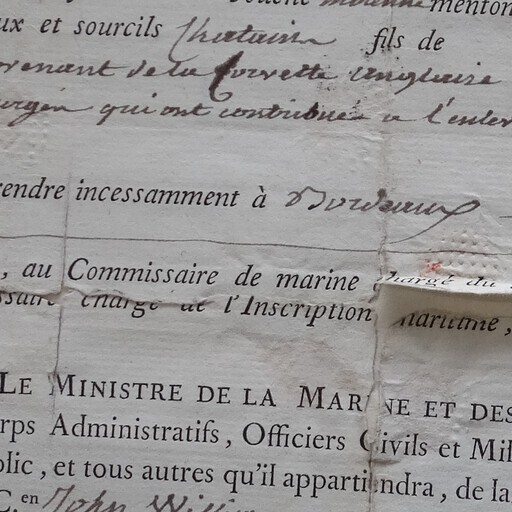 menton
ux et sourcils Chatains fils de
venant de la Corvette anglaise
qui ont contribués a l'enlev
rendre incessamment à Bordeaux
, au Commissaire de marine chargé du
ssaire chargé de l'Inscription maritime,
LE MINISTRE DE LA MARINE ET DES
rps Administratifs, Officiers Civils et Mil
blic, et tous autres qu'il appartiendra, de la
C. en John